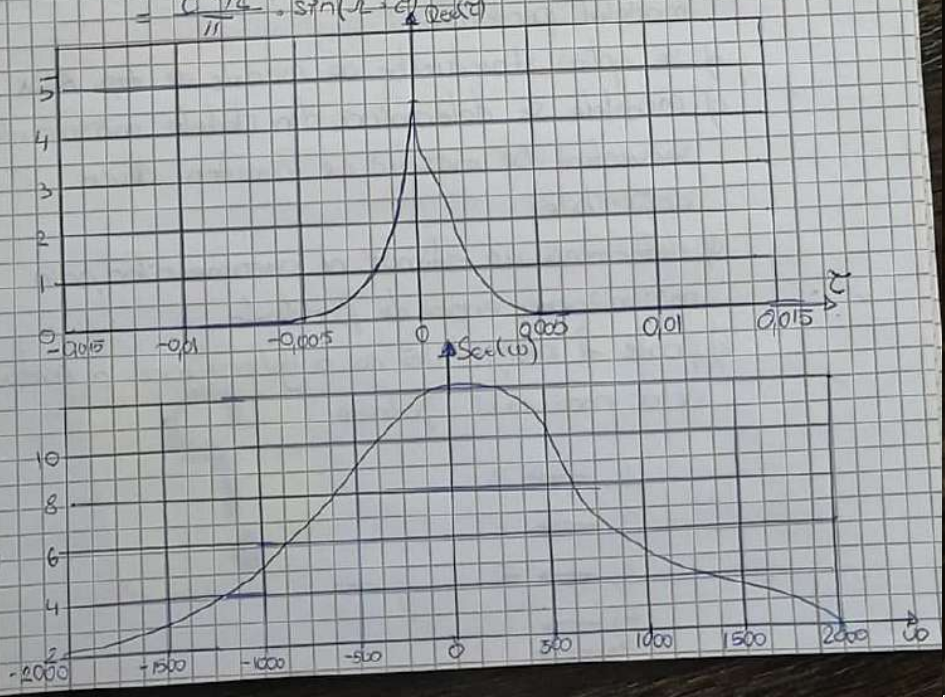 = · sin(Ω ·
5
4
3
2
1
0
-0,015 -0,01 -0,005 0 0,005 0,01 0,015 τ
10
8
6
4
2
-2000 -1500 -1000 -500 0 500 1000 1500 2000 ω